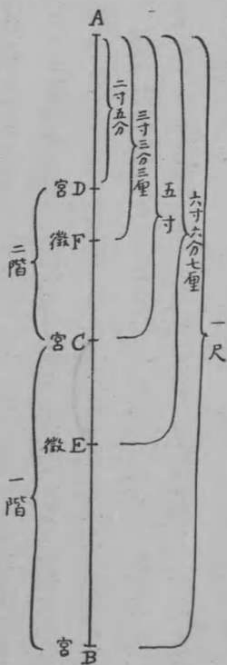 A
二寸五分
三寸三分三厘
五寸
六寸六分七厘
一尺
宮D
徵F
宮C
徵E
宮B
二階
一階